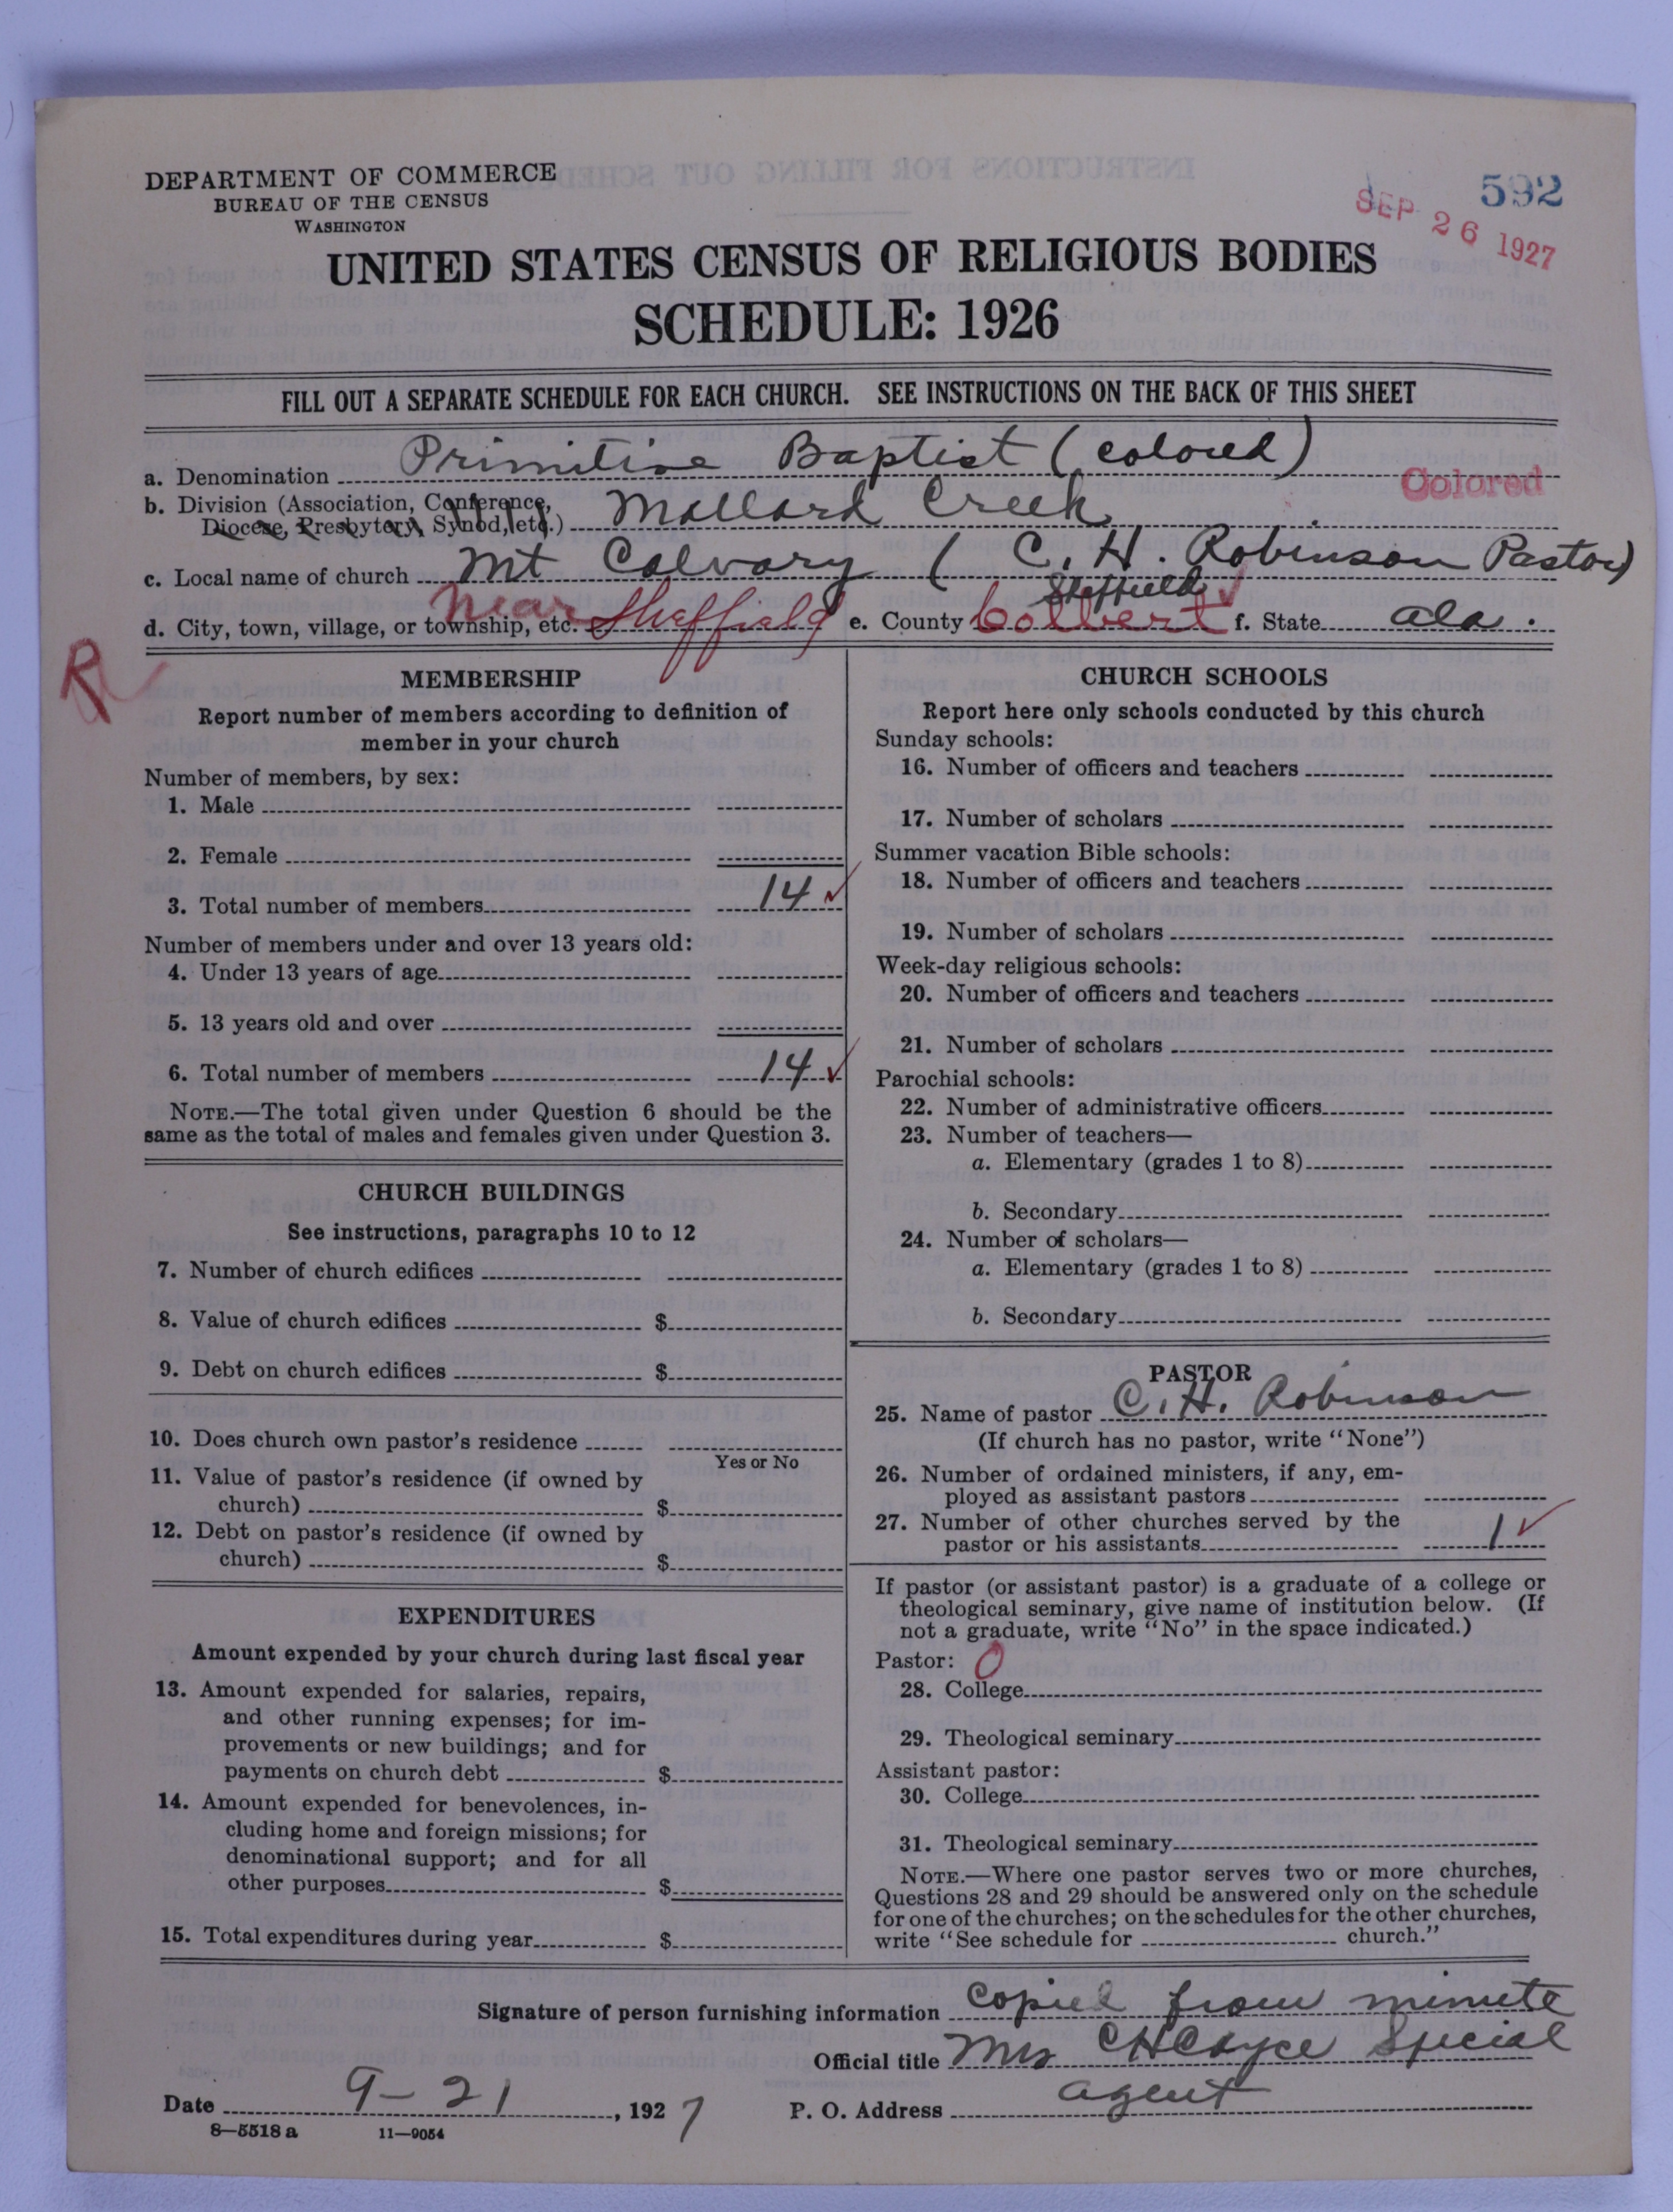 DEPARTMENT OF COMMERCE
BUREAU OF THE CENSUS
WASHINGTON
592
SEP 26 1927
UNITED STATES CENSUS OF RELIGIOUS BODIES
SCHEDULE: 1926
FILL OUT A SEPARATE SCHEDULE FOR EACH CHURCH. SEE INSTRUCTIONS ON THE BACK OF THIS SHEET
a. Denomination Primitive Baptist (colored)
Colored
b. Division (Association, Conference,
Diocese, Presbytery, Synod, etc.) Mallard Creek
c. Local name of church Mt Calvary (C. H. Robinson Pastor)
Sheffield
d. City, town, village, or township, etc. near Sheffield e. County Colbert f. State ala.
R
MEMBERSHIP
Report number of members according to definition of
member in your church
Number of members, by sex:
1. Male
2. Female
3. Total number of members 14
Number of members under and over 13 years old:
4. Under 13 years of age
5. 13 years old and over
6. Total number of members 14
NOTE.—The total given under Question 6 should be the
same as the total of males and females given under Question 3.
CHURCH BUILDINGS
See instructions, paragraphs 10 to 12
7. Number of church edifices
8. Value of church edifices $
9. Debt on church edifices $
10. Does church own pastor's residence
Yes or No
11. Value of pastor's residence (if owned by
church) $
12. Debt on pastor's residence (if owned by
church) $
EXPENDITURES
Amount expended by your church during last fiscal year
13. Amount expended for salaries, repairs,
and other running expenses; for im-
provements or new buildings; and for
payments on church debt $
14. Amount expended for benevolences, in-
cluding home and foreign missions; for
denominational support; and for all
other purposes $
15. Total expenditures during year $
CHURCH SCHOOLS
Report here only schools conducted by this church
Sunday schools:
16. Number of officers and teachers
17. Number of scholars
Summer vacation Bible schools:
18. Number of officers and teachers
19. Number of scholars
Week-day religious schools:
20. Number of officers and teachers
21. Number of scholars
Parochial schools:
22. Number of administrative officers
23. Number of teachers—
a. Elementary (grades 1 to 8)
b. Secondary
24. Number of scholars—
a. Elementary (grades 1 to 8)
b. Secondary
PASTOR
25. Name of pastor C. H. Robinson
(If church has no pastor, write "None")
26. Number of ordained ministers, if any, em-
ployed as assistant pastors
27. Number of other churches served by the
pastor or his assistants 1
If pastor (or assistant pastor) is a graduate of a college or
theological seminary, give name of institution below. (If
not a graduate, write "No" in the space indicated.)
Pastor: 0
28. College
29. Theological seminary
Assistant pastor:
30. College
31. Theological seminary
NOTE.—Where one pastor serves two or more churches,
Questions 28 and 29 should be answered only on the schedule
for one of the churches; on the schedules for the other churches,
write "See schedule for church."
Signature of person furnishing information copied from minute
Official title Mrs CHCayce Special
Date 9-21, 1927 P. O. Address agent
8—5518 a 11—9054